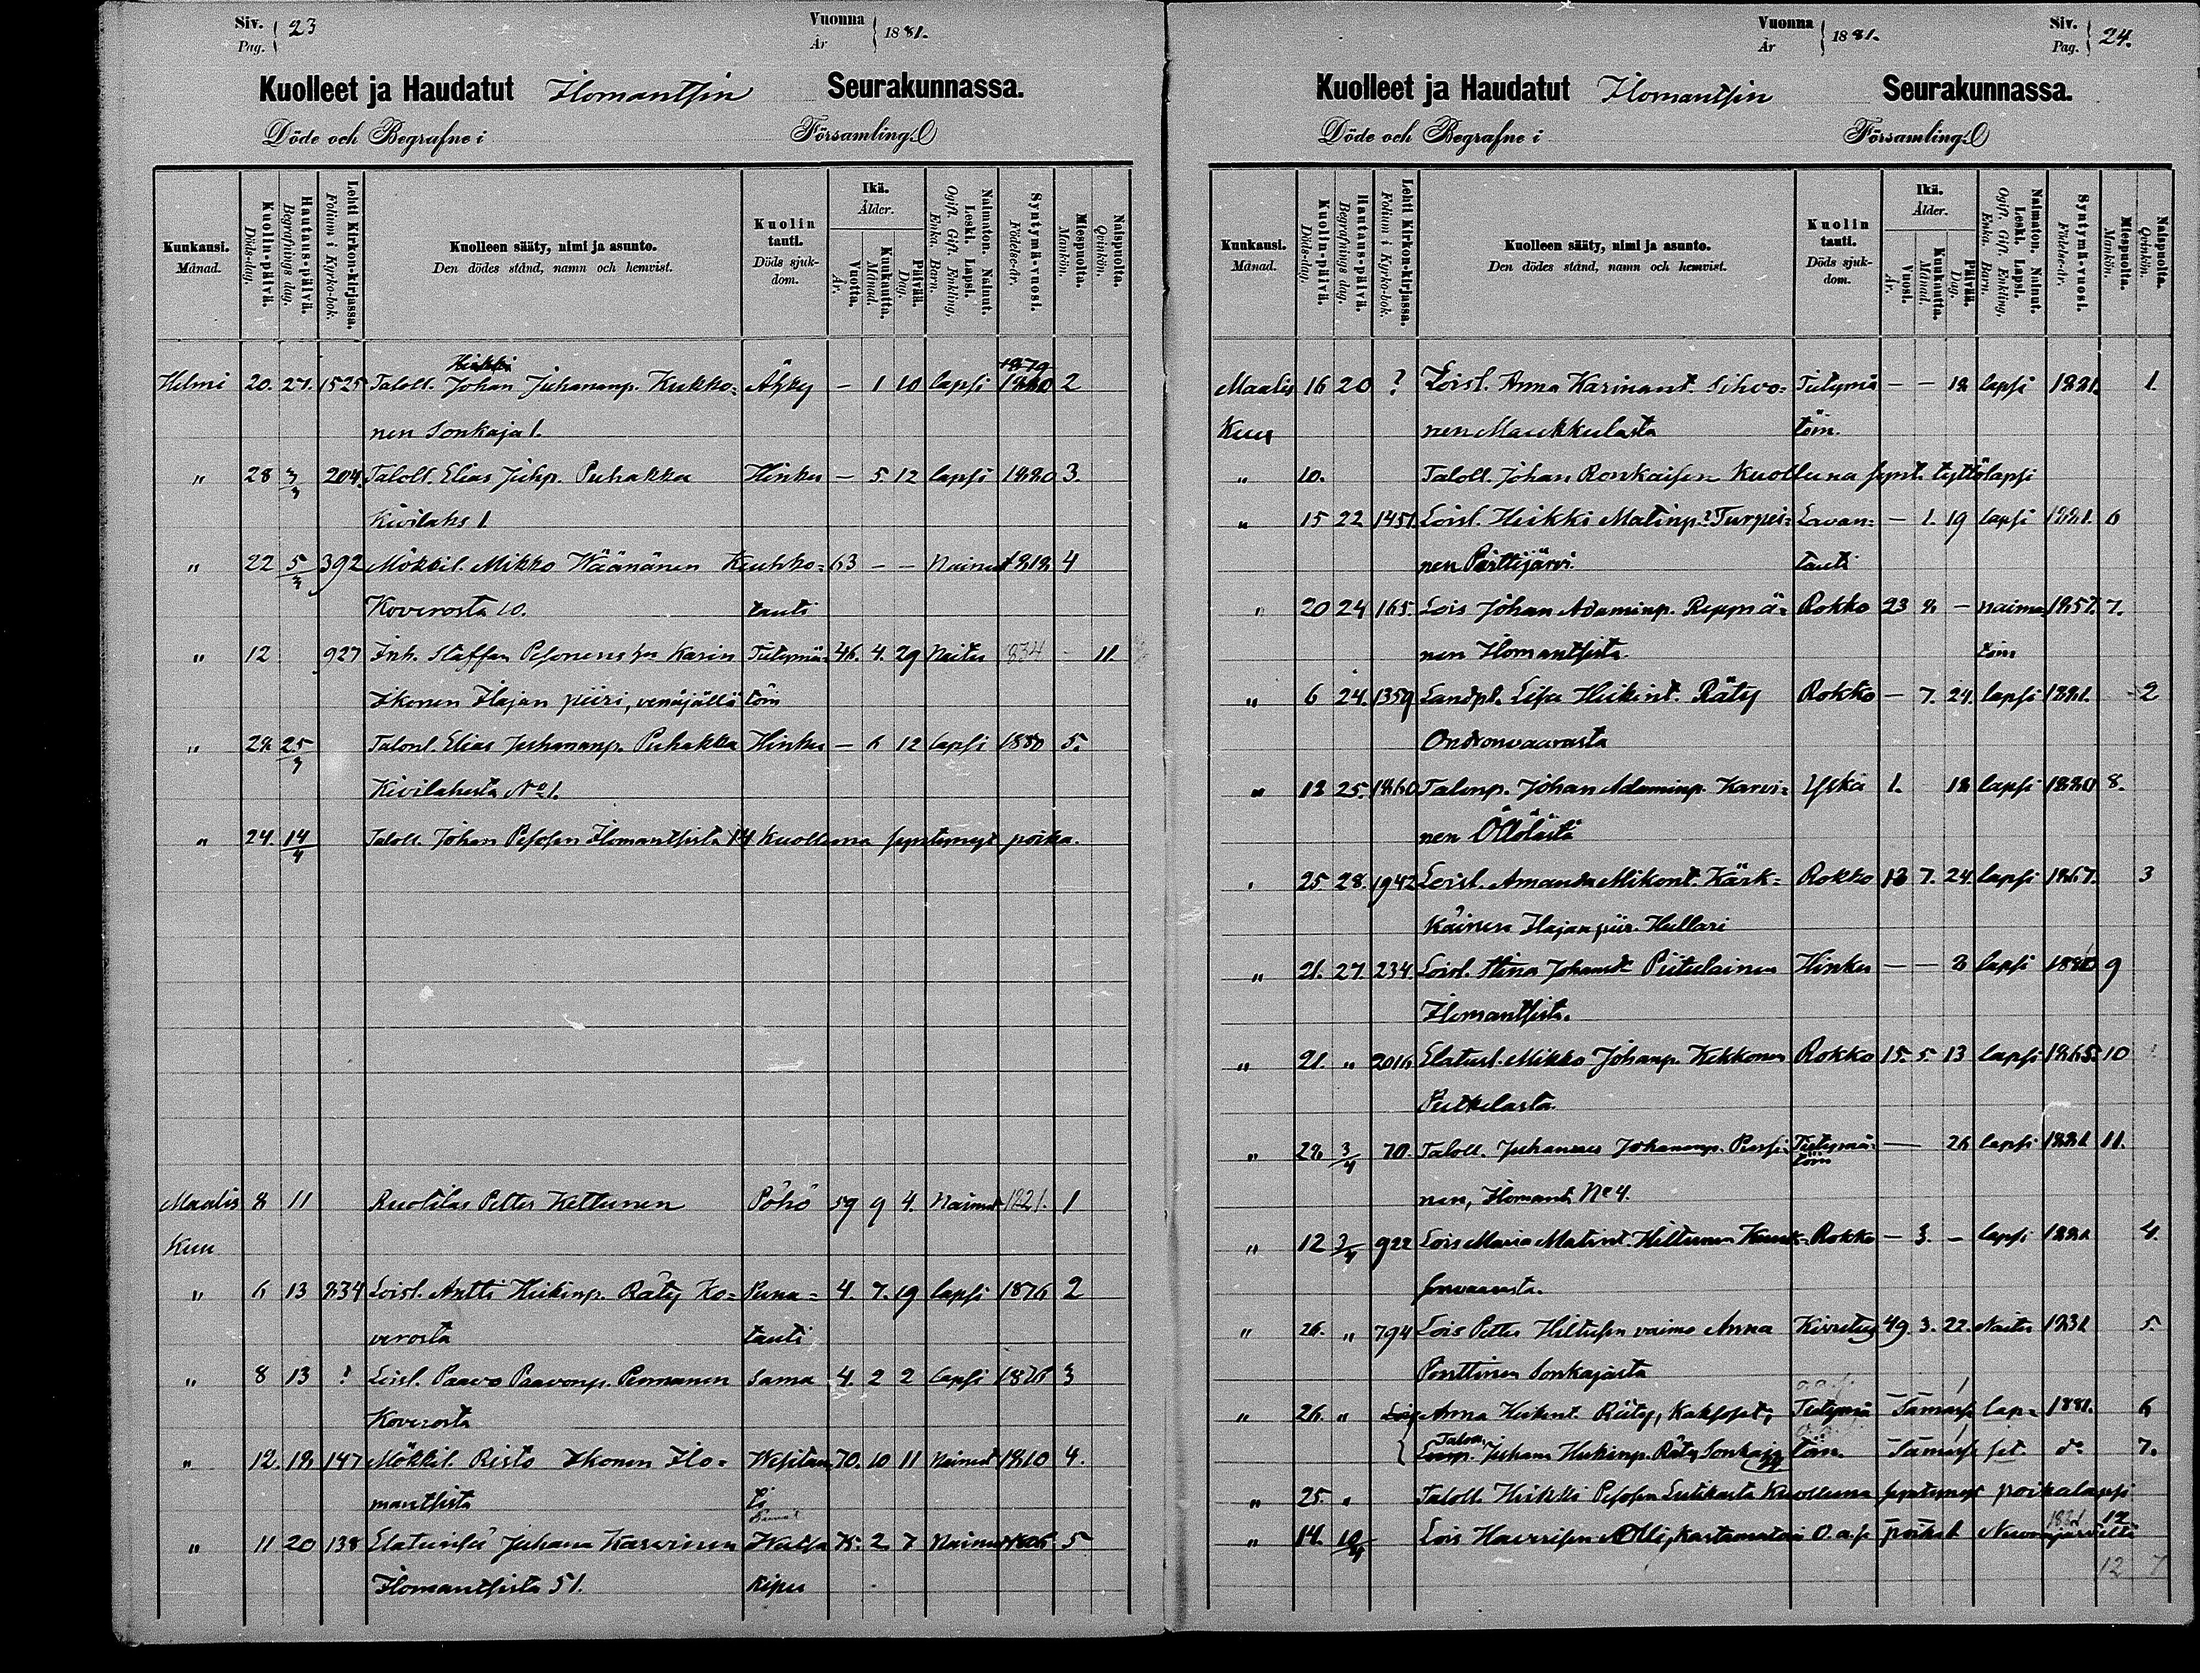 Siv. Pag. 23
Vuonna År 1881.
Kuolleet ja Haudatut Ilomantsin Seurakunnassa.
Döde och Begrafne i Församling.
Kuukausi. Månad.
Kuolin-päivä. Döds-dag.
Hautaus-päivä. Begrafnings dag.
Lehti Kirkon-kirjassa. Folium i Kyrko-bok.
Kuolleen sääty, nimi ja asunto. Den dödes stånd, namn och hemvist.
Kuolin tauti. Döds sjukdom.
Ikä. Ålder.
Vuotta. År.
Kuukautta. Månad.
Päivää. Dag.
Naimaton. Nainut. Leski. Lapsi. Ogift. Gift. Enkling. Enka. Barn.
Syntymä-vuosi. Födelse-år.
Miespuolta. Mankön.
Naispuolta. Qvinkön.
Heikki 1879
Helmi 20. 27. 1525 Taloll. Johan Juhananp. Kukko= Ähky – 1 10 lapsi 1880 2
nen Sonkaja 1.
" 28 3/3 204. Taloll. Elias Juhp. Puhakka Hinku – 5. 12 lapsi 1880 3.
Kivilahs 1.
" 22 5/3 392 Mökkil. Mikko Wäänänen Keuhko= 63 – – Nainut 1818 4
Koverosta 10. tauti
" 12 927 Inh. Staffan Pesonens hu Karin Tietymä= 46. 4. 29 Naitu 1834 11.
Ikonen Ilajan piiri, venäjällä töin
" 28 25/3 Talonl. Elias Juhananp. Puhakka Hinku – 6 12 lapsi 1880 5.
Kivilahesta No 1.
" 24. 14/4 Taloll. Johan Pesosen Ilomantsista 14 Kuolluna syntynyt poika.
Maalis 8 11 Ruotilas Petter Kettunen Pöhö 59 9 4. Nainut 1821. 1
Kuu
" 6 13 834 Loisl. Antti Heikinp. Räty Ko= Puna= 4. 7. 19 lapsi 1876 2
verosta tauti
" 8 13 ? Loisl. Paavo Paavonp. Pennanen Sama 4. 2 2 lapsi 1876 3
Koverosta
" 12. 18 147 Mökkil. Risto Ikonen Ilo= Wesitau 70. 10 11 Nainut 1810 4.
mantsista ti
" 11 20 138 Juhana Karvinen 75. 2 7 Nainut 1806 5
Ilomantsista 51. kipu
Vuonna År 1881.
Siv. Pag. 24.
Kuolleet ja Haudatut Ilomantsin Seurakunnassa.
Döde och Begrafne i Församling.
Kuukausi. Månad.
Kuolin-päivä. Döds-dag.
Hautaus-päivä. Begrafnings dag.
Lehti Kirkon-kirjassa. Folium i Kyrko-bok.
Kuolleen sääty, nimi ja asunto. Den dödes stånd, namn och hemvist.
Kuolin tauti. Döds sjukdom.
Ikä. Ålder.
Vuosi. År.
Kuukautta. Månad.
Päivää. Dag.
Naimaton. Nainut. Leski. Lapsi. Ogift. Gift. Enkling. Enka. Barn.
Syntymä-vuosi. Födelse-år.
Miespuolta. Mankön.
Naispuolta. Qvinkön.
Maalis 16 20 ? Loisl. Anna Karinant. Sihvo= Tietymä – – 18 lapsi 1881. 1.
Kuu nen Maukkulasta töin.
" 10. Taloll. Johan Ronkaisen Kuolluna synt. tyttölapsi
" 15 22 1451. Loisl. Heikki Matinp. Turpei= Lavan= – 1. 19 lapsi 1881. 6
nen Pörttijärvi. tauti
" 20 24 165. Lois Johan Adaminp. Reppä= Rokko 23 8 – naima 1857. 7.
nen Ilomantsista töin
" 6 24. 1359 Landpl. Lisa Heikint. Räty Rokko – 7. 24. lapsi 1881. 2
Ondronvaarasta
" 12 25. 1860 Talonp. Johan Adaminp. Karvi= Yskä 1. 18 lapsi 1880 8.
nen Öllölästä
" 25 28. 1942 Loisl. Amanda Mikont. Kärk= Rokko 13 7. 24. lapsi 1867. 3
käinen Ilajan piir. Hullari
" 21. 27. 234. Loisl. Stina Johansd. Piitulainen Hinku – – 8 lapsi 9
Ilomantsista.
" 21. " 2016 Elatusl. Mikko Johanp. Kekkonen Rokko 15. 5 13 lapsi 1865. 10
Putkelasta.
" 28 3/4 70. Taloll. Juhannes Johananp. Tietymä= — 26 lapsi 1881 11.
nen, Ilomants No 4. töin
" 12 3/4 922 Lois Maria Matint. Hiltunen Rokko – 3. – lapsi 1881 4.
" 26. " 794 Lois Petter Hiltusen vaimo Anna Kivistys 49. 3. 22. Naitu 1831 5.
Ponttinen Sonkajasta
" 26. " Anna Heikint. Räty, Kaksoset, Tietymä Samass lap= 1881. 6
Juhana Heikinp. Räty Sonkaja töin. Samass set do 7.
" 25. " Taloll. Heikki Pesosen Kuolluna syntynyt poikalapsi
" 14. 10/4 Lois Haverisen Olli, Kastamatoin o.a.p poikal 1881 12
12 7